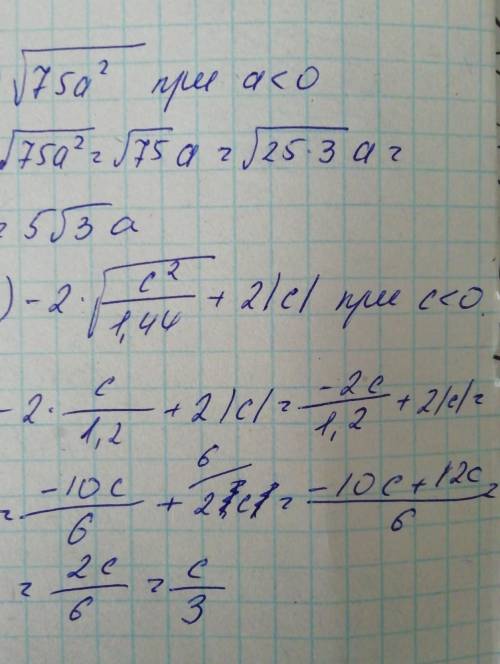 √75a² при a<0
√75a² = √75 a = √25·3 a =
= 5√3 a
) -2·√(c²/1,44) + 2|c| при c<0
-2· c/1,2 + 2|c| = -2c/1,2 + 2|c| =
= -10c/6 + 6/2c = -10c+12c/6 =
= 2c/6 = c/3